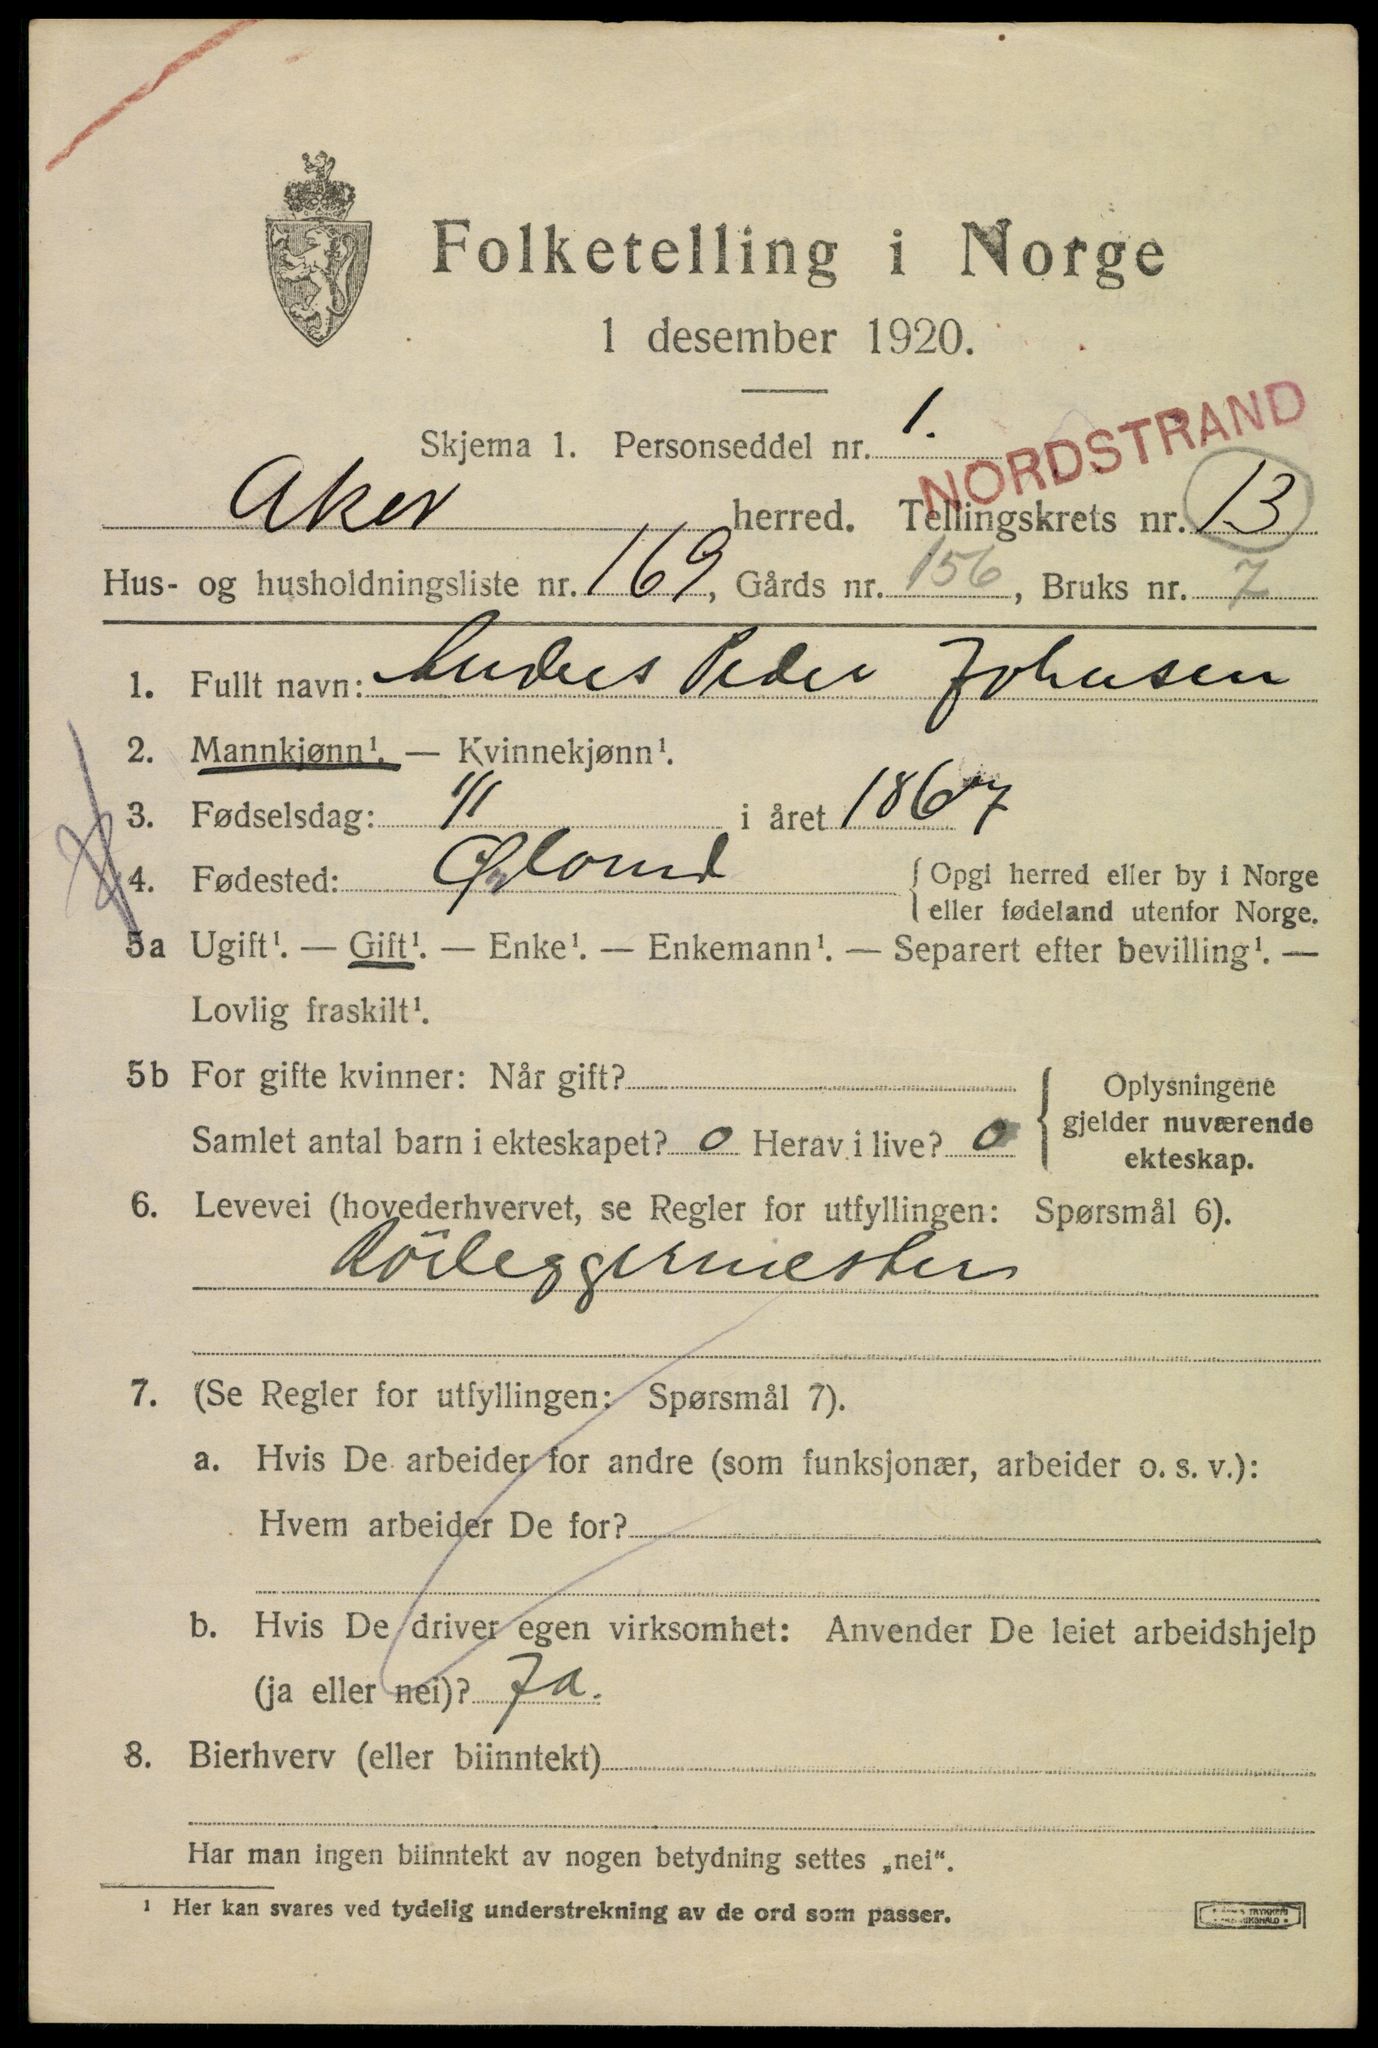 Folketelling i Norge
1 desember 1920.
Skjema 1. Personseddel nr. 1.
NORDSTRAND
Aker herred. Tellingskrets nr. 13
Hus- og husholdningsliste nr. 169, Gårds nr. 156, Bruks nr. 7
1. Fullt navn: Anders Peder Johnsen
2. Mannkjønn¹. — Kvinnekjønn¹.
3. Fødselsdag: 1/1 i året 1867
4. Fødested: { Opgi herred eller by i Norge
eller fødeland utenfor Norge.
5a Ugift¹. — Gift¹. — Enke¹. — Enkemann¹. — Separert efter bevilling¹. —
Lovlig fraskilt¹.
5b For gifte kvinner: Når gift?
Samlet antal barn i ekteskapet? 0 Herav i live? 0
{ Oplysningene
gjelder nuværende
ekteskap.
6. Levevei (hovederhvervet, se Regler for utfyllingen: Spørsmål 6).
Rörleggermester
7. (Se Regler for utfyllingen: Spørsmål 7).
a. Hvis De arbeider for andre (som funksjonær, arbeider o. s. v.):
Hvem arbeider De for?
b. Hvis De driver egen virksomhet: Anvender De leiet arbeidshjelp
(ja eller nei)? Ja.
8. Bierhverv (eller biinntekt)
Har man ingen biinntekt av nogen betydning settes „nei“.
¹ Her kan svares ved tydelig understrekning av de ord som passer.